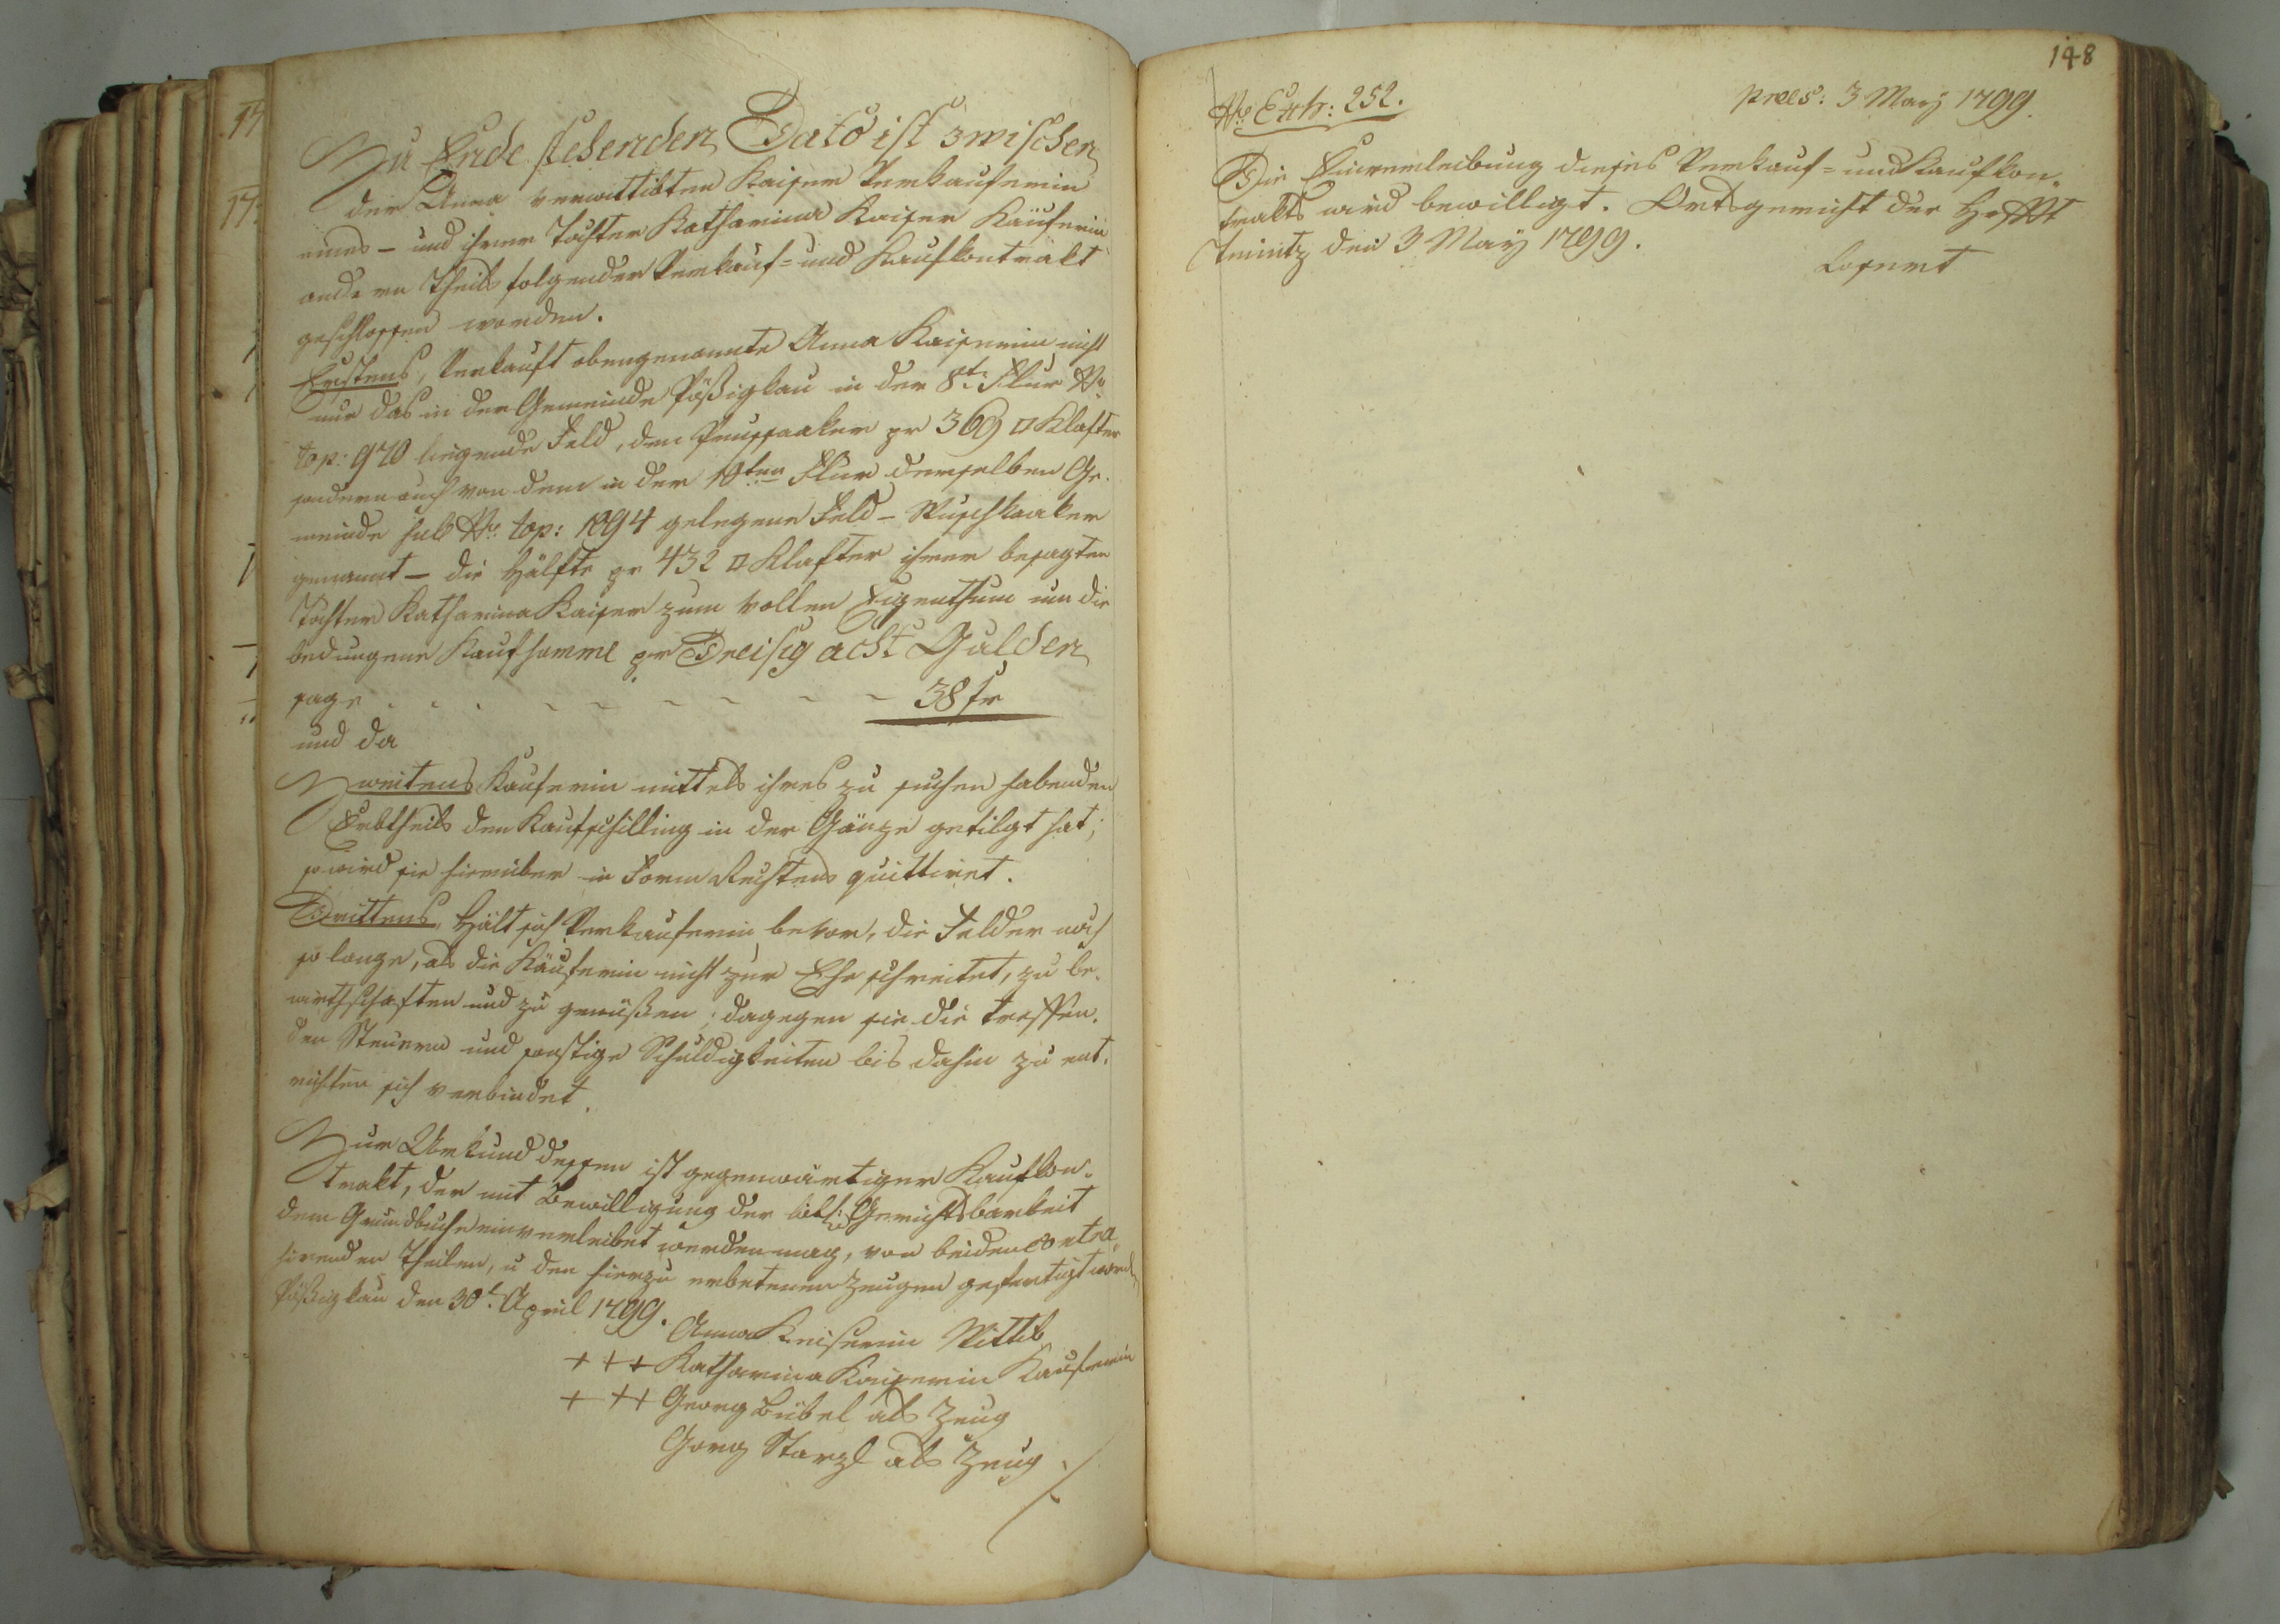 Zu Ende stehenden Dato ist zwischen
der Anna verwittibten Kaiser Verkauferin
eines – und ihrer Tochter Katharina Kaiser Käuferin
anderen Theils folgender Verkauf- und Kaufkontrakt
geschlossen worden.
Erstens, Verkauft obengenannte Anna Kaiserin nicht
nur das in der Gemeinde Pößigkau in der 8t: Flur No
top: 970 liegende Feld, den pr 369 □ Klafter
sondern auch von dem in der 10ten Flur derselben Ge-
meinde sub No: top: 1094 gelegene Feld –
genannt – die Hälfte pr 432 □ Klafter ihrer besagten
Tochter Katharina Kaiser zum vollen Eigenthum um die
bedungene Kaufsumme pr Dreisig acht Gulden
sage - - - - - - - - - 38 fr
und da
Zweitens Kauferin mittels ihres zu suchen habenden
Erbtheils den Kaufschilling in der Gänze getilgt hat;
so wird sie hierüber in Form Rechtens quittiret.
Drittens, Hält sich Verkauferin bevor, die Felder noch
so lange, als die Käuferin nicht zur Ehe schreitet, zu be-
wirthschaften und zu genüßen; dagegen sie die treffen-
den Steuern und sonstige Schuldigkeiten bis dahin zu ent-
richten sich verbindet.
Zur Urkund dessen ist gegenwärtiger Kaufkon-
trakt, der mit Bewilligung der löbl: Gerichtsbarkeit
dem Grundbuche einverleibet werden mag, von beiden contra-
hirenden Theilen, u den hierzu erbetenen Zeugen gefertigt word
Pößigkau den 30t: April 1799.
Anna Keiserin Wittib
+++ Katharina Kaiserin Kauferin
+ ++ Georg Bübel als Zeug
Gorg Starzl als Zeug
148
No Exh: 252.
præs: 3 May 1799.
Die Einverleibung dieses Verkauf- und Kaufkon-
trakts wird bewilligt. Ortsgericht der Hrfft
den 3 May 1799.